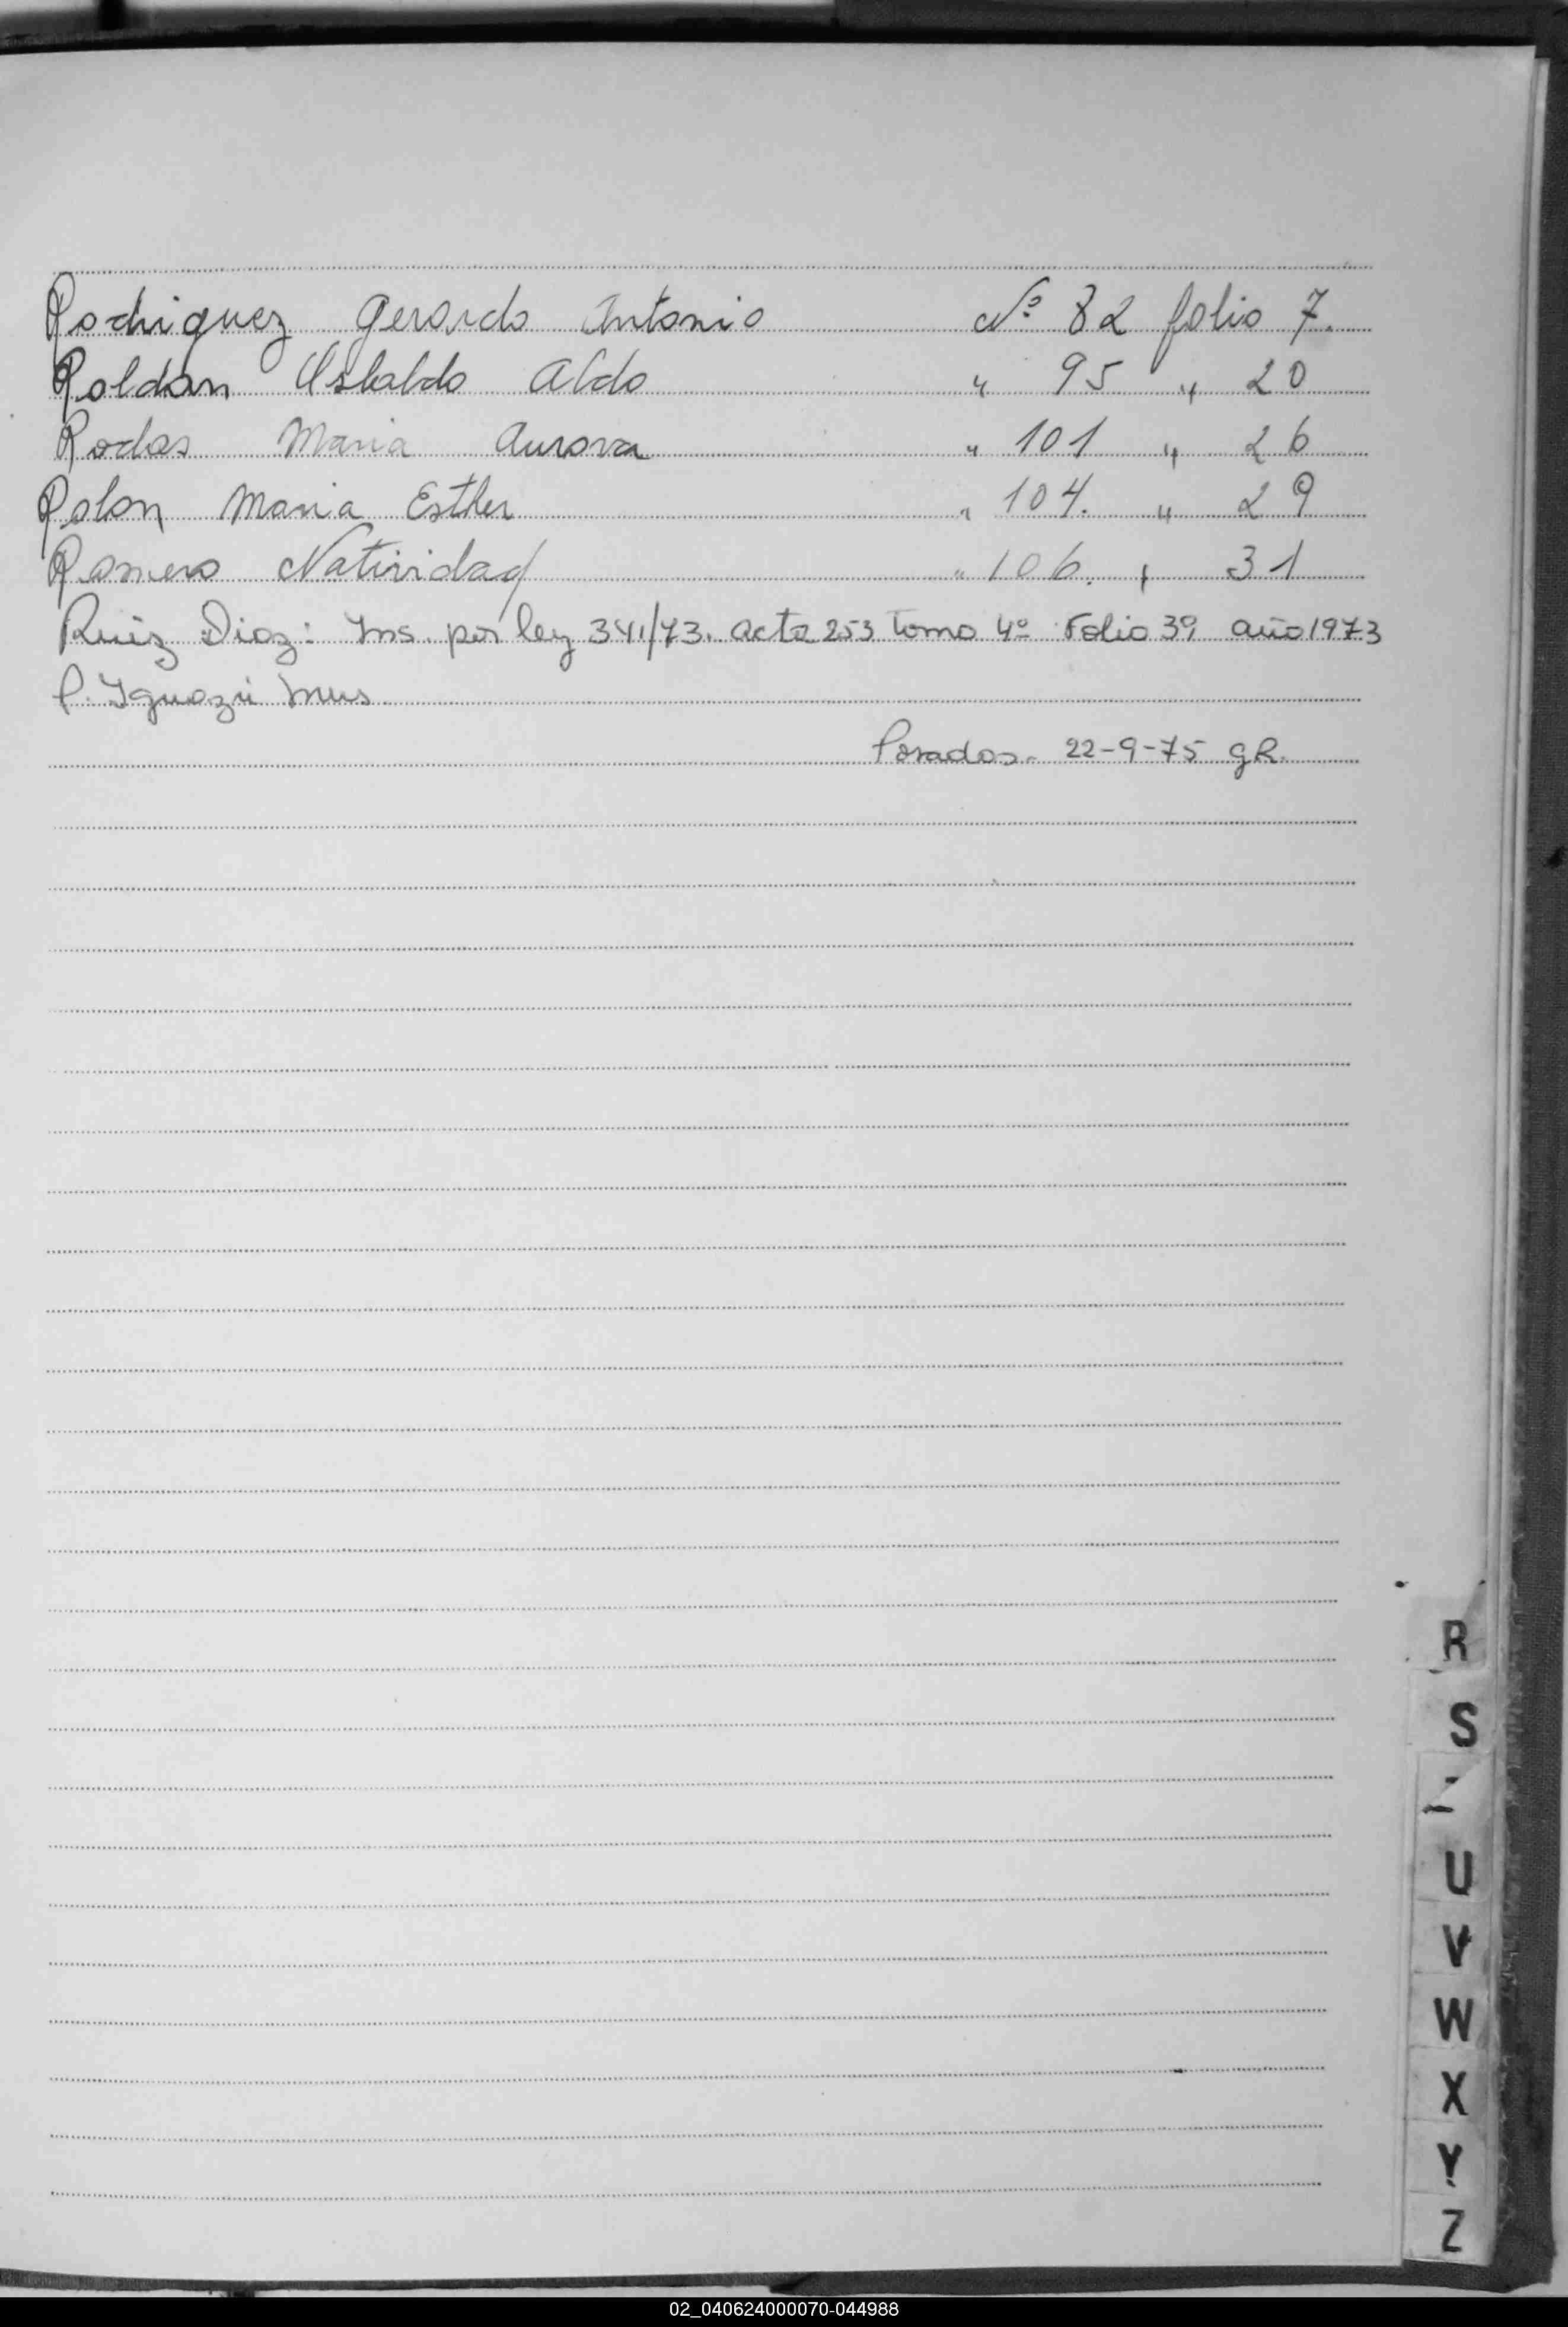 Rodriguez Gerardo Antonio Nº 82 folio 7.
Roldan Osbaldo Aldo " 95 " 20
Rodas Maria Aurora " 101 " 26
Rolon Maria Esther " 104. " 29
Romero Natividad " 106. " 31
Ruiz Diaz: Ins. por ley 341/73. acta 253 Tomo 4º Folio 39 año 1973
P. Iguazú Mnes
Posadas. 22-9-75 gR.
R
S
U
V
W
X
Y
Z
02_040624000070-044988